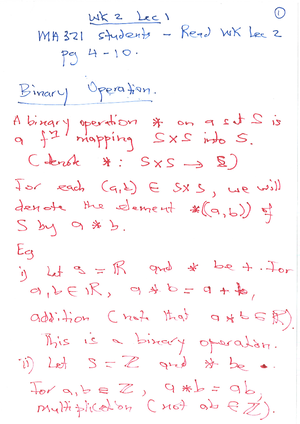 WK 2 Lec 1
①
MA 321 students - Read WK Lec 2
pg 4-10.
Binary Operation.
A binary operation * on a set S is
a fⁿ mapping S×S into S.
(denote *: S×S → S)
For each (a,b) ∈ S×S, we will
denote the element *((a,b)) of
S by a * b.
Eg
i) Let S = ℝ and * be +. For
a,b ∈ ℝ, a * b = a + b,
addition (note that a*b ∈ ℝ).
This is a binary operation.
ii) Let S = ℤ and * be •.
For a,b ∈ ℤ, a*b = ab,
multiplication (not ab ∈ ℤ).